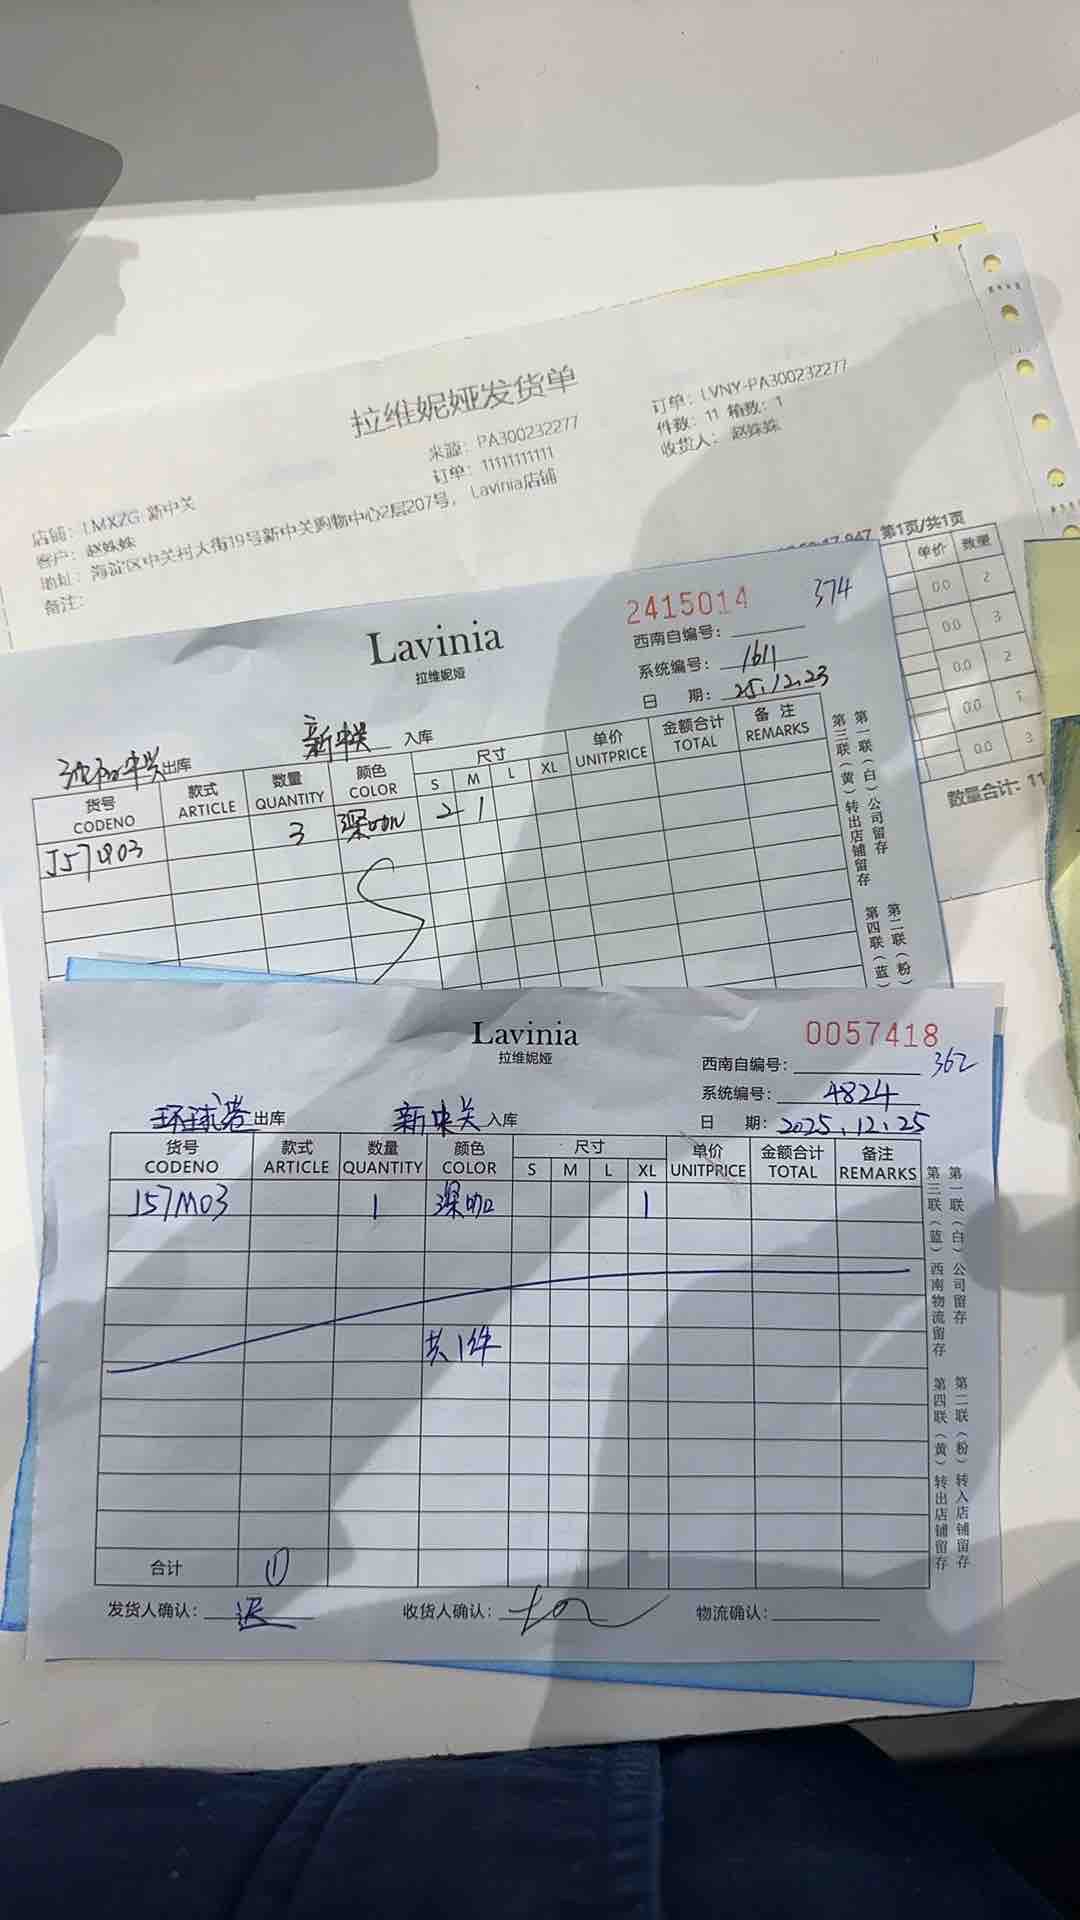 拉维妮娅发货单
来源：PA300232277
订单：LVNY-PA300232277
订单：11111111111
件数：11 箱数：1
收货人：赵姝姝
店铺：LMXZG-新中关
客户：赵姝姝
地址：海淀区中关村大街19号新中关购物中心2层207号，Lavinia店铺
备注：
第1页/共1页
单价 数量
0.0 2
0.0 3
0.0 2
0.0 1
0.0 3
数量合计：11
2415014 374
Lavinia
拉维妮娅
西南自编号：
系统编号：1611
日 期：25.12.23
出库 新中关 入库
货号 CODENO 款式 ARTICLE 数量 QUANTITY 颜色 COLOR 尺寸 S M L XL 单价 UNITPRICE 金额合计 TOTAL 备注 REMARKS
3 深咖 2 1
第一联（白）公司留存
第三联（黄）转出店铺留存
第二联（粉）
第四联（蓝）
Lavinia
拉维妮娅
0057418
西南自编号： 362
系统编号：4824
环球港出库 新中关入库 日 期：2025.12.25
货号 CODENO 款式 ARTICLE 数量 QUANTITY 颜色 COLOR 尺寸 S M L XL 单价 UNITPRICE 金额合计 TOTAL 备注 REMARKS
J57M03 1 深咖 1
共1件
合计 ①
发货人确认： 收货人确认： 物流确认：
第一联（白）公司留存
第三联（蓝）西南物流留存
第二联（粉）转入店铺留存
第四联（黄）转出店铺留存